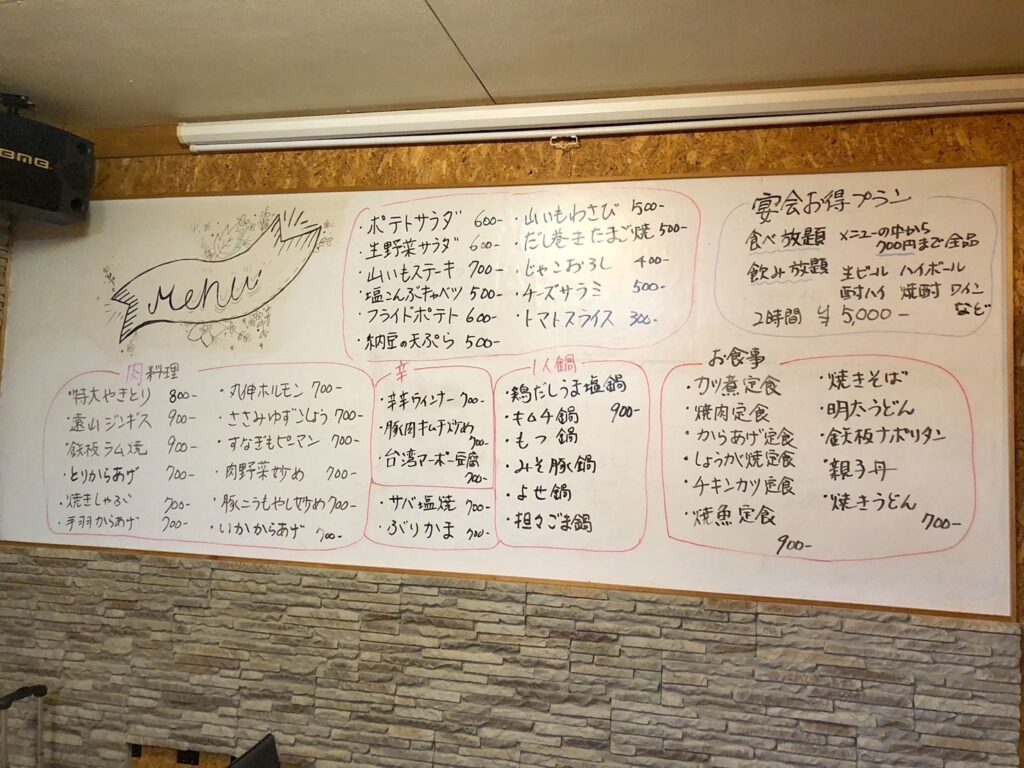 BMB
Menu
・ポテトサラダ 600-
・生野菜サラダ 600-
・山いもステーキ 700-
・塩こんぶキャベツ 500-
・フライドポテト 600-
・納豆の天ぷら 500-
・山いもわさび 500-
・だし巻きたまご焼 500-
・じゃこおろし 400-
・チーズサラミ 500-
・トマトスライス 300-
宴会お得プラン
食べ放題 メニューの中から
700円まで全品
飲み放題 生ビール ハイボール
酎ハイ 焼酎 ワイン
など
2時間 ¥5,000-
肉料理
・特大やきとり 800-
・遠山ジンギス 900-
・鉄板ラム焼 900-
・とりからあげ 700-
・焼きしゃぶ 700-
・手羽からあげ 700-
・丸伸ホルモン 700-
・ささみゆずこしょう 700-
・すなぎもピーマン 700-
・肉野菜炒め 700-
・豚ニラもやし炒め 700-
・いかからあげ 700-
辛
・辛辛ウィンナー 700-
・豚肉キムチ炒め
700-
・台湾マーボー豆腐
700-
・サバ塩焼 700-
・ぶりかま 700-
1人鍋
・鶏だしうま塩鍋
・キムチ鍋 900-
・もつ鍋
・みそ豚鍋
・よせ鍋
・担々ごま鍋
お食事
・カツ煮定食
・焼肉定食
・からあげ定食
・しょうが焼定食
・チキンカツ定食
・焼魚定食
900-
・焼きそば
・明太うどん
・鉄板ナポリタン
・親子丼
・焼きうどん
700-